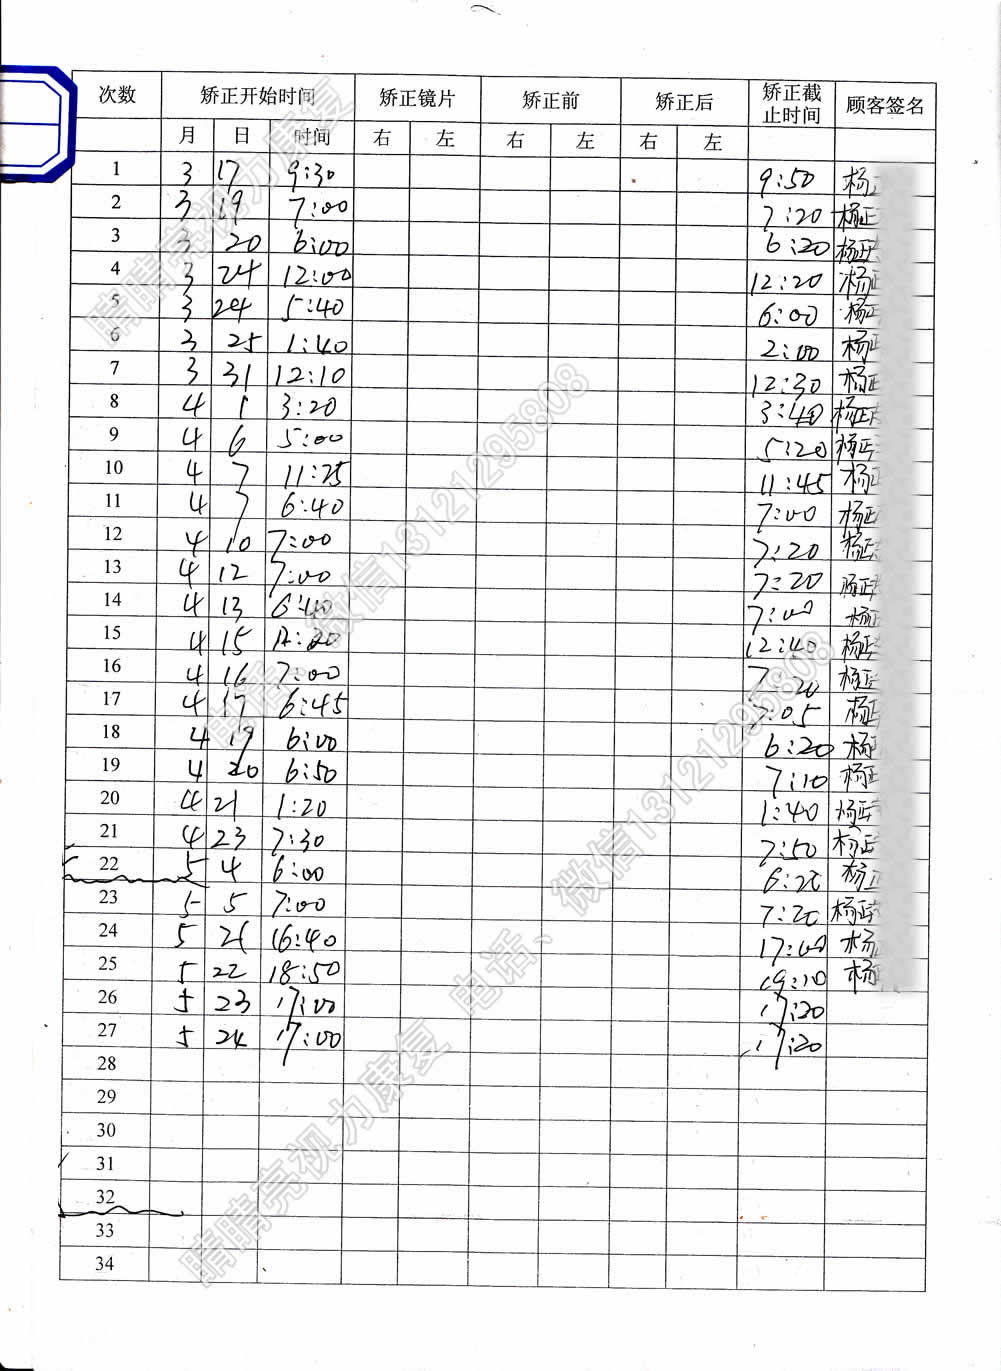 次数 矫正开始时间 矫正镜片 矫正前 矫正后 矫正截止时间 顾客签名
月 日 时间 右 左 右 左 右 左
1 3 17 9:30 9:50 杨
2 3 19 7:00 7:20 杨正
3 3 20 6:00 6:20 杨正
4 3 24 12:00 12:20 杨正
5 3 24 5:40 6:00 杨正
6 3 25 1:40 2:00 杨正
7 3 31 12:10 12:30 杨正
8 4 1 3:20 3:40 杨正
9 4 6 5:00 5:20 杨正
10 4 7 11:25 11:45 杨正
11 4 7 6:40 7:00 杨正
12 4 10 7:00 7:20 杨正
13 4 12 7:00 7:20 杨正
14 4 13 6:40 7:00 杨正
15 4 15 12:20 12:40 杨正
16 4 16 7:00 7:20 杨正
17 4 17 6:45 7:05 杨正
18 4 19 6:00 6:20 杨正
19 4 20 6:50 7:10 杨正
20 4 21 1:20 1:40 杨正
21 4 23 7:30 7:50 杨正
22 5 4 6:00 6:20 杨正
23 5 5 7:00 7:20 杨正
24 5 21 16:40 17:00 杨
25 5 22 18:50 19:10 杨
26 5 23 17:00 17:20
27 5 24 17:00 17:20
28
29
30
31
32
33
34
睛睛亮视力康复
睛睛亮 微信13121295808
睛睛亮视力康复 电话、微信13121295808